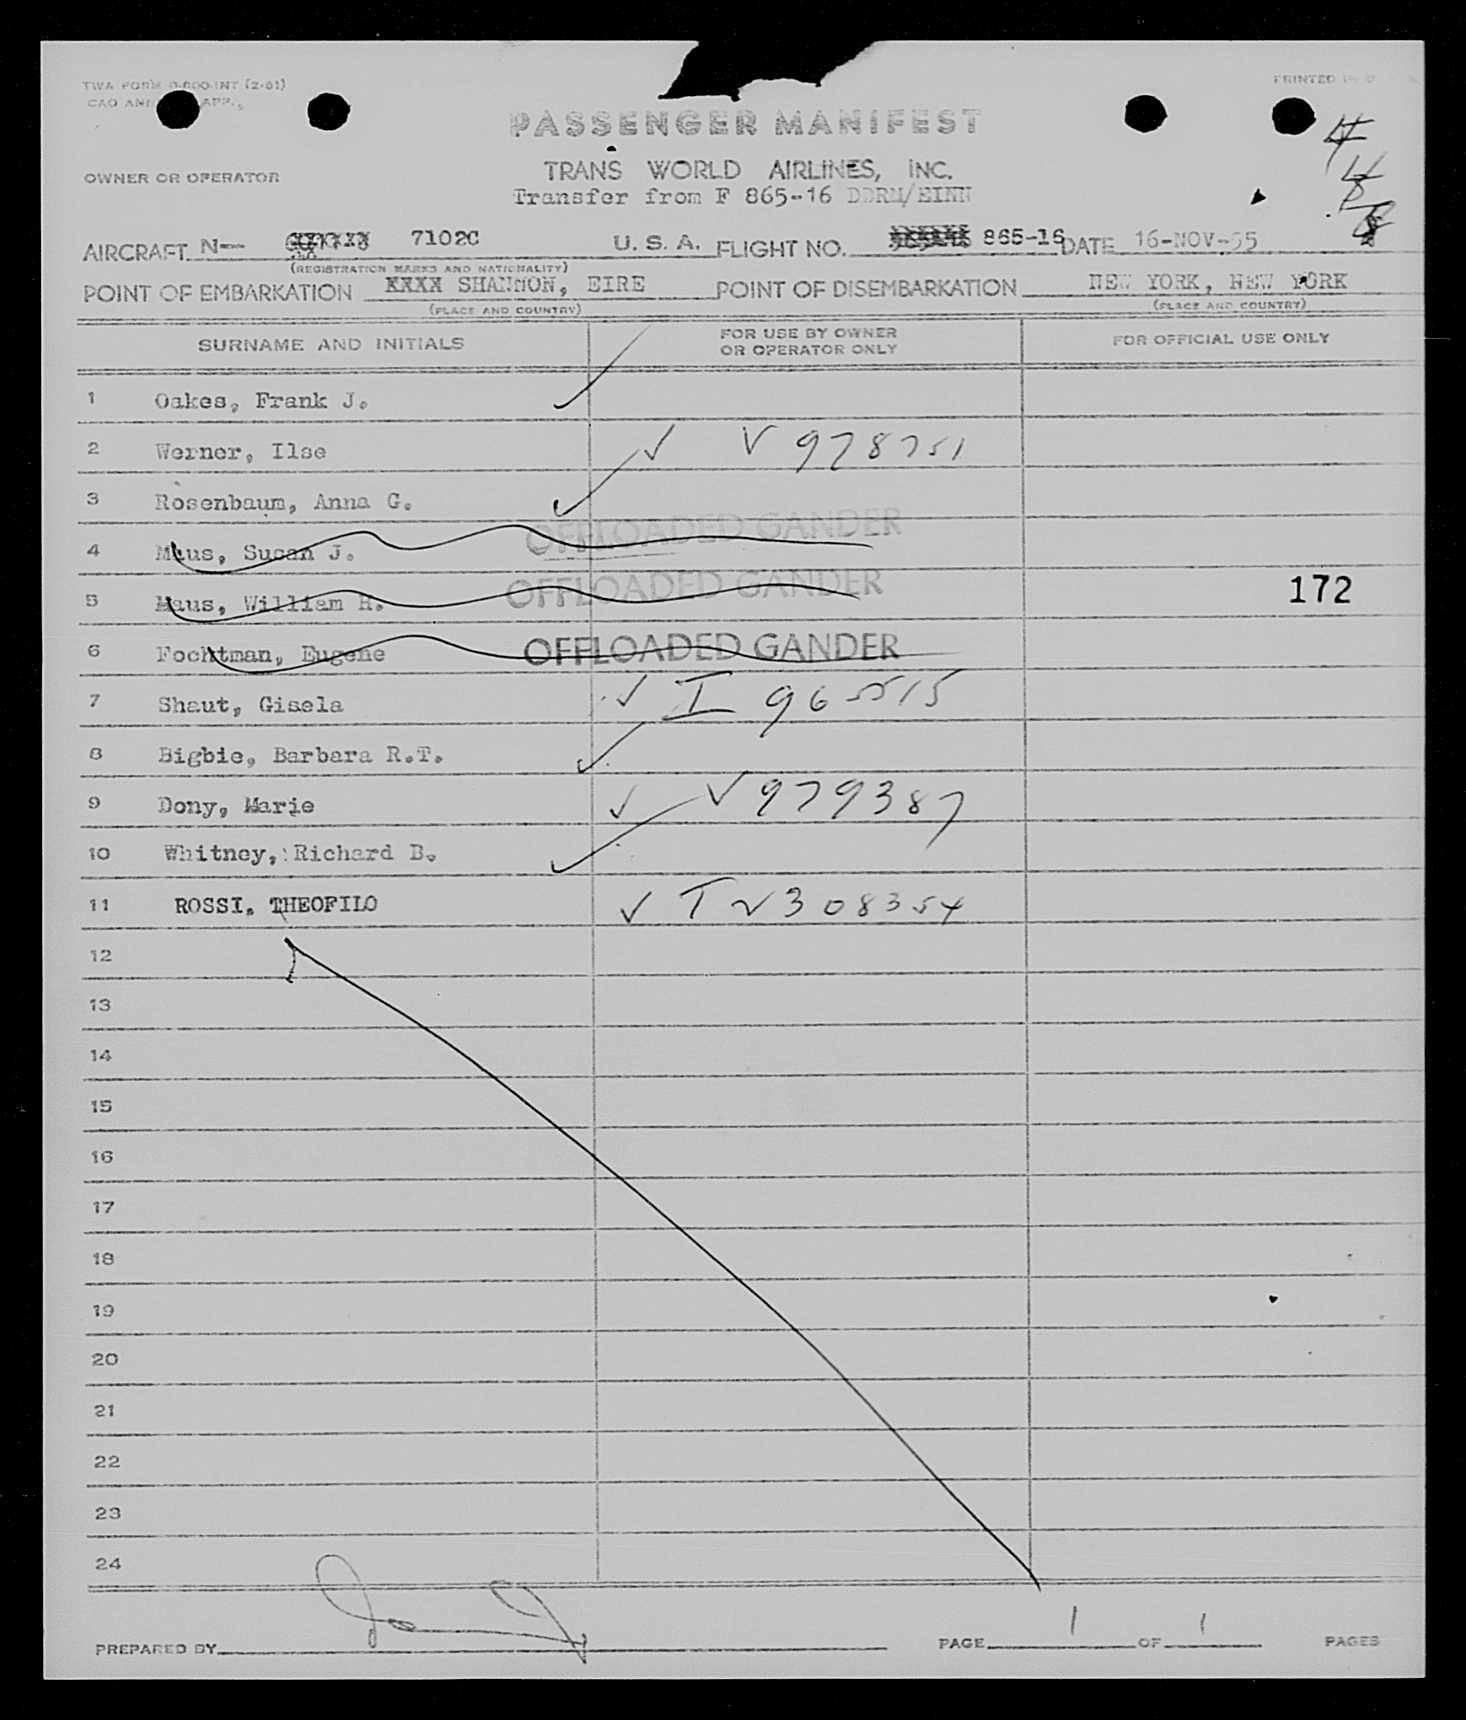 TWA FORM
CAO
PRINTED IN
PASSENGER MANIFEST
TRANS WORLD AIRLINES, INC.
OWNER OR OPERATOR
Transfer from F 865-16 DDRM/EINN
AIRCRAFT N-- 7102C U. S. A. FLIGHT NO. 865-16 DATE 16-NOV-55
(REGISTRATION MARKS AND NATIONALITY)
POINT OF EMBARKATION XXXX SHANNON, EIRE POINT OF DISEMBARKATION NEW YORK, NEW YORK
(PLACE AND COUNTRY) (PLACE AND COUNTRY)
SURNAME AND INITIALS FOR USE BY OWNER OR OPERATOR ONLY FOR OFFICIAL USE ONLY
1 Oakes, Frank J.
2 Werner, Ilse V 978751
3 Rosenbaum, Anna G.
4 Maus, Susan J. OFFLOADED GANDER
5 Maus, William H. OFFLOADED GANDER 172
6 Fochtman, Eugene OFFLOADED GANDER
7 Shaut, Gisela I 965515
8 Bigbie, Barbara R.T.
9 Dony, Marie V 979387
10 Whitney, Richard B.
11 ROSSI, THEOFILO TV308354
12
13
14
15
16
17
18
19
20
21
22
23
24
PREPARED BY PAGE 1 OF 1 PAGES